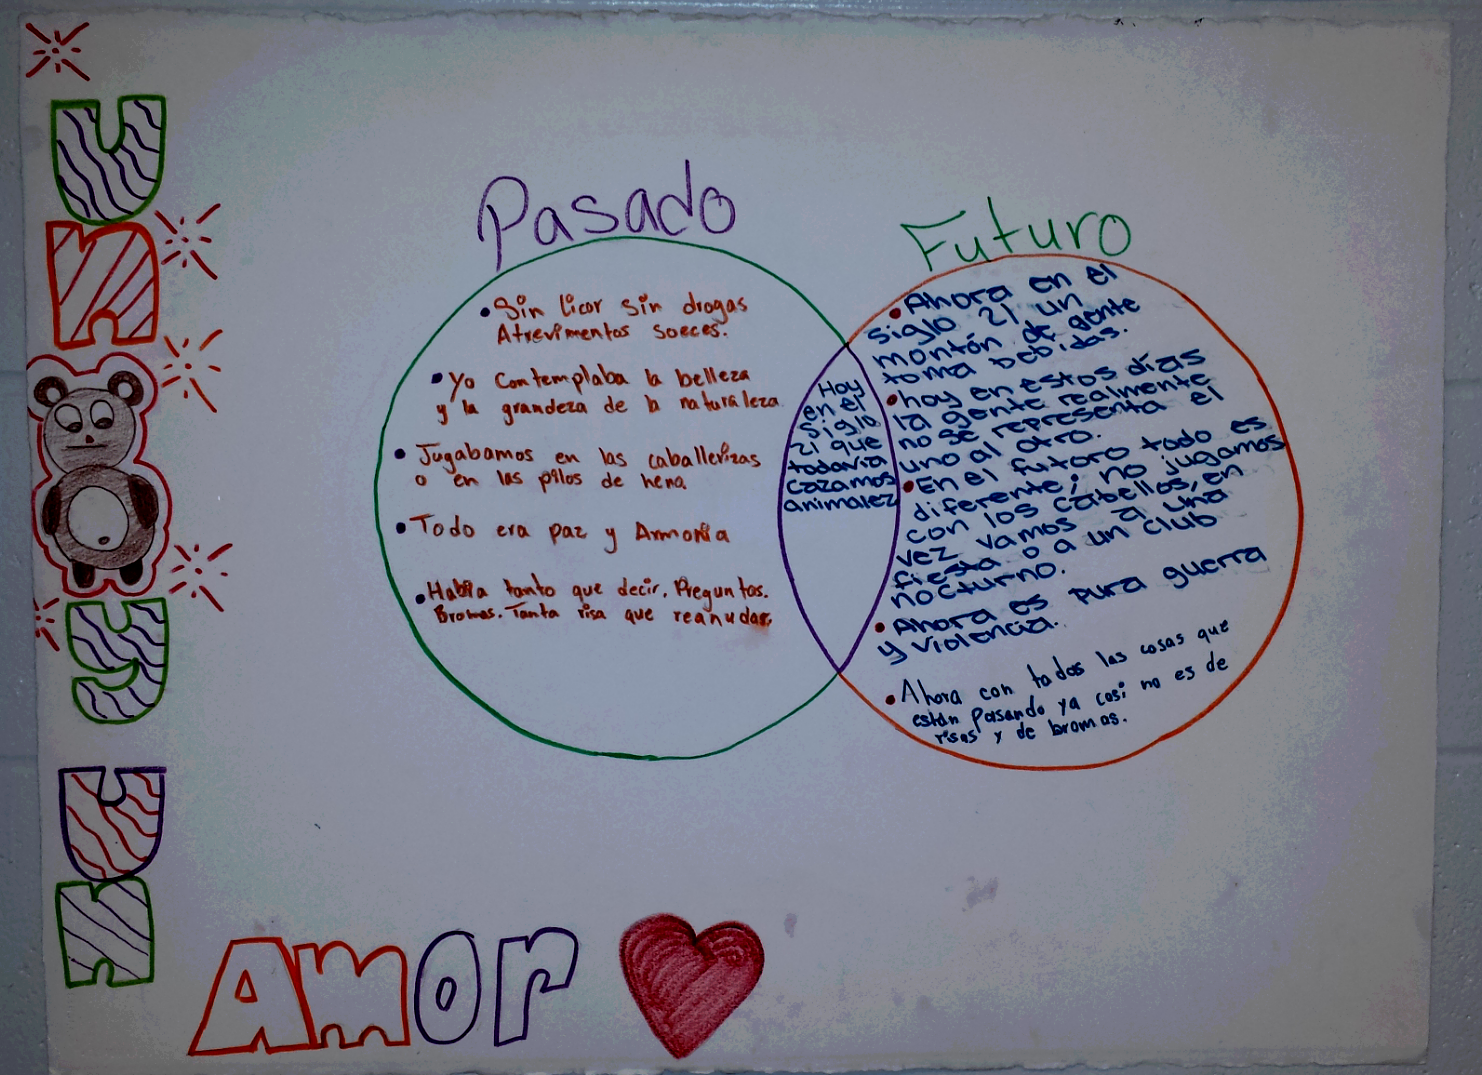 Un
oso
y
Un
Amor
Pasado
• Sin licor sin drogas
Atrevimentos soeces.
• Yo contemplaba la belleza
y la grandeza de la naturaleza
• Jugabamos en las caballerizas
o en las pilos de hena
• Todo era paz y Armonia
• Habia tanto que decir. Preguntas.
Bromas. Tanta risa que reanudar.
Hoy
en el
siglo
21 que
todavia
cazamos
animalez
Futuro
• Ahora en el
siglo 21 un
montón de gente
toma bebidas.
• hoy en estos días
la gente realmente
no se representa el
uno al otro.
• En el futoro todo es
diferente; no jugamos
con los cabellos, en
vez vamos a una
fiesta o a un club
nocturno.
• Ahora es pura guerra
y violencia.
• Ahora con todos las cosas que
están pasando ya casi no es de
risas y de bromas.